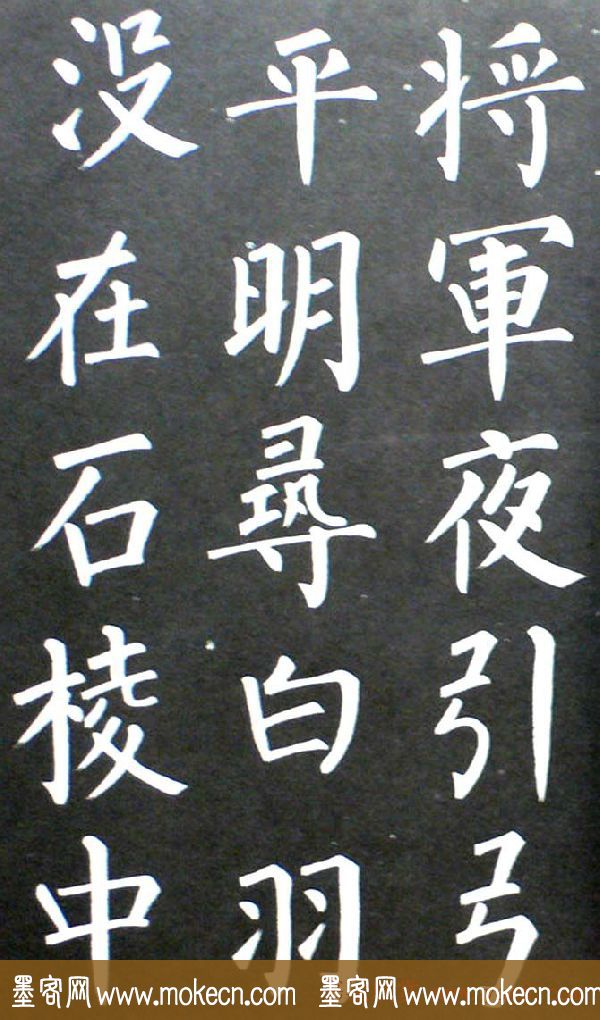 将軍夜引弓
平明尋白羽
没在石棱中
墨客网 www.mokecn.com 墨客网 www.mokecn.com